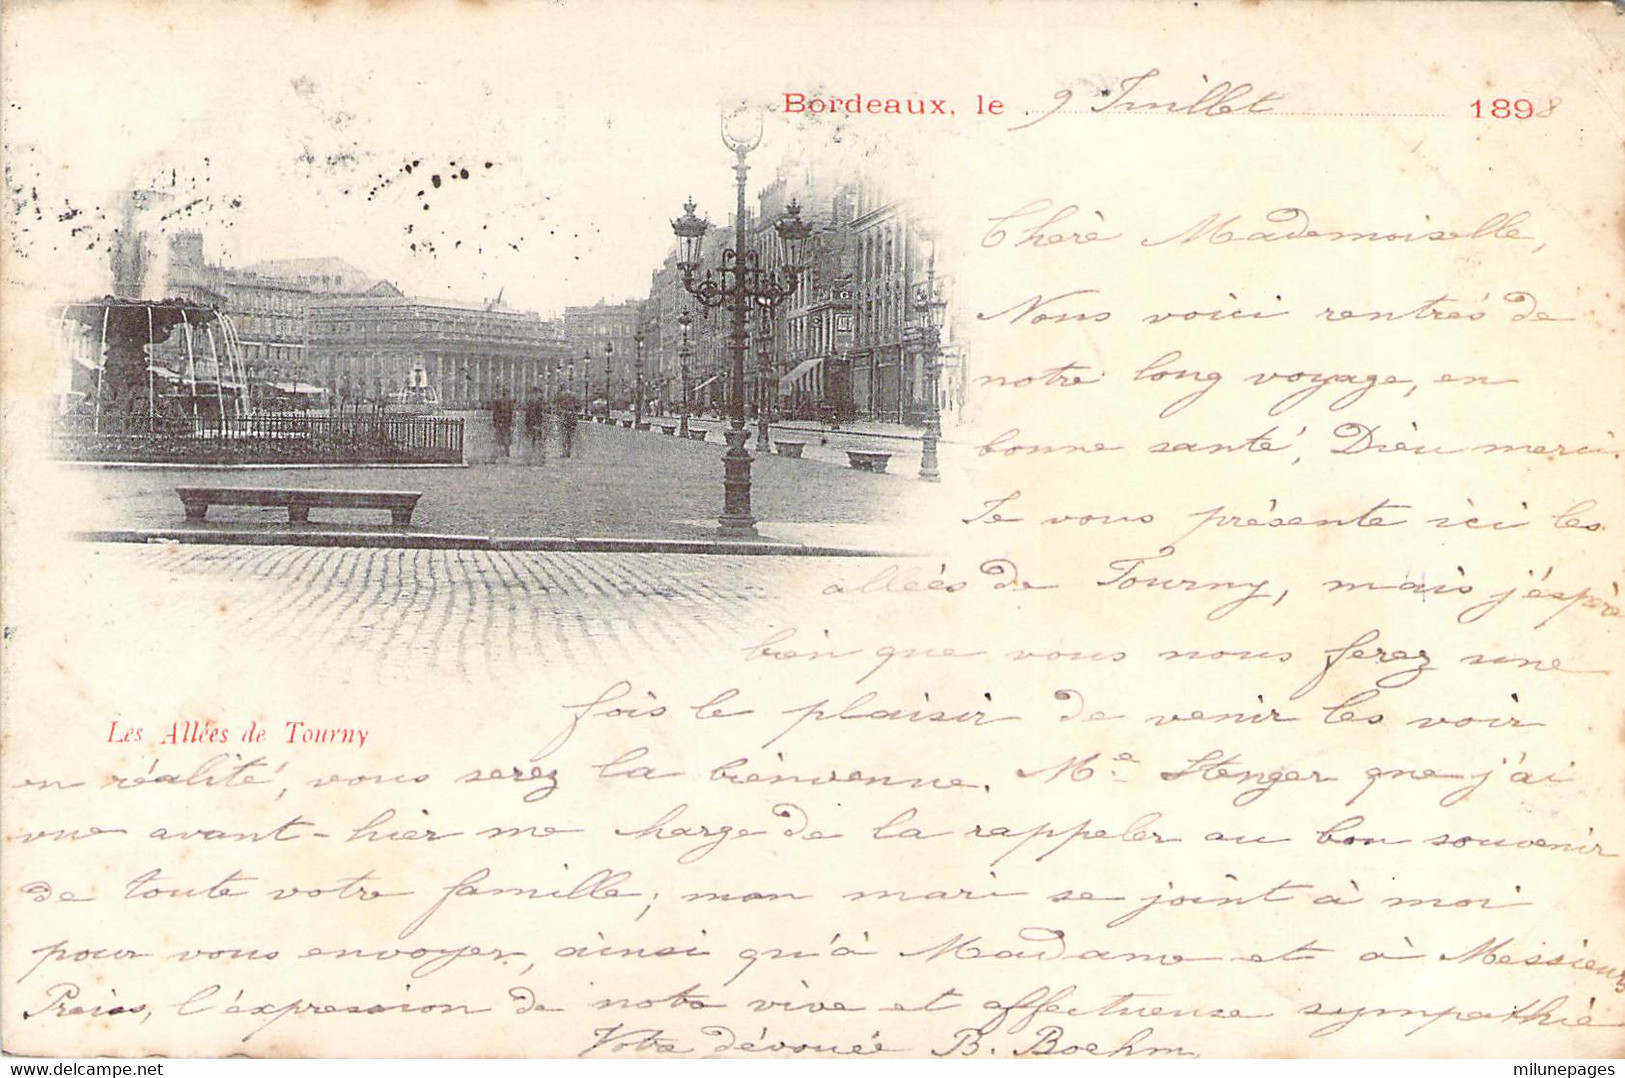 Bordeaux, le 9 Juillet 1898
Chère Mademoiselle,
Nous voici rentrés de
notre long voyage, en
bonne santé, Dieu merci.
Je vous présente ici les
allées de Tourny, mais j'espère
bien que vous nous ferez une
fois le plaisir de venir les voir
Les Allées de Tourny
en réalité, vous serez la bienvenue. Me Stenger que j'ai
vue avant-hier me charge de la rappeler au bon souvenir
de toute votre famille; mon mari se joint à moi
pour vous envoyer, ainsi qu'à Madame et à Messieurs
Preiss, l'expression de notre vive et affectueuse sympathie
Votre dévouée B. Boehm
delcampe.net
milunepages